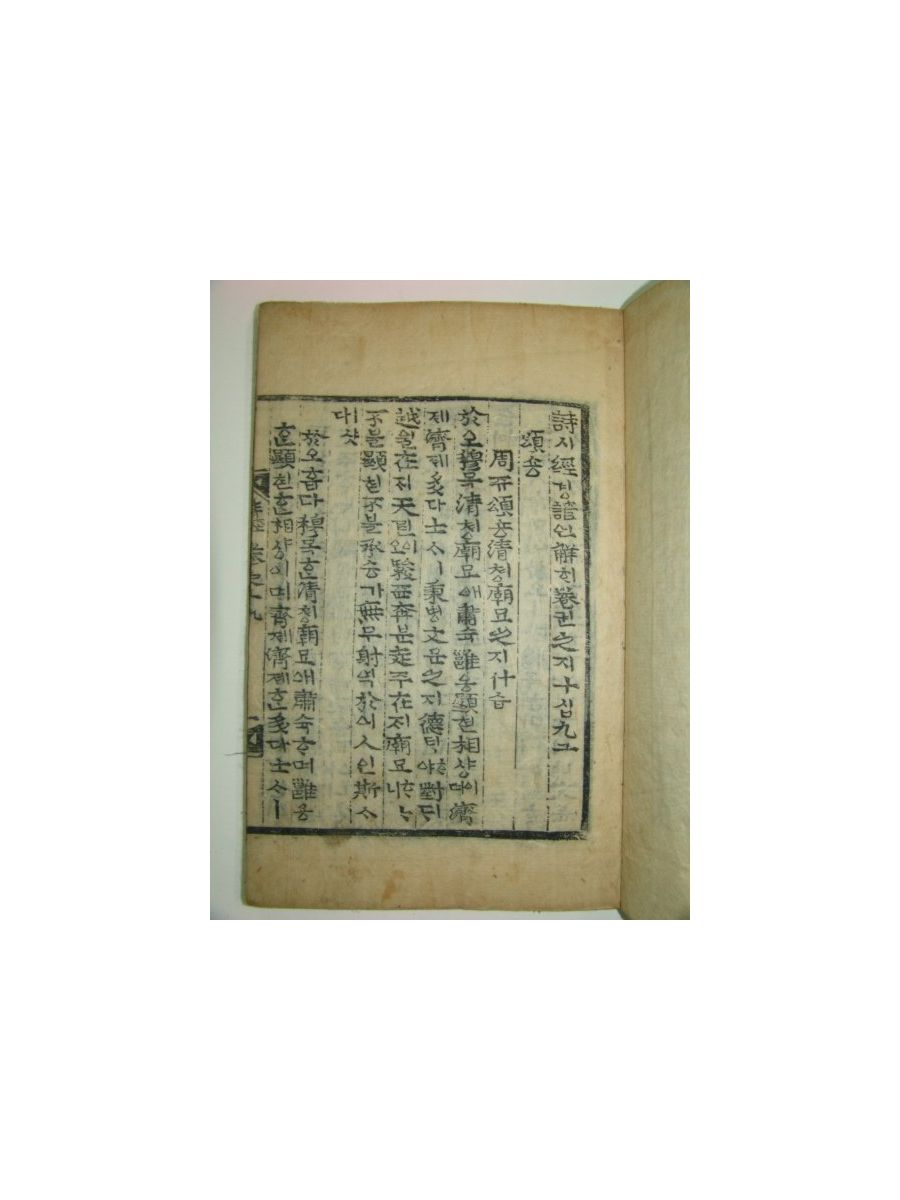 詩시經경諺언解ᄒᆡ卷권之지十십九구
頌숑
周쥬頌숑淸쳥廟묘之지什습
於오穆목淸쳥廟묘애肅슉雝옹顯현相샹이며濟
졔濟졔多다士ᄉᆞㅣ秉병文문之지德덕ᄒᆞ야對ᄃᆡ
越월在ᄌᆡ天텬이오駿쥰奔분走주在ᄌᆡ廟묘ᄒᆞᄂᆞ니
不블顯현不블承승가無무射역於어人인斯ᄉᆞ
다샷
於오홉다穆목ᄒᆞᆫ淸쳥廟묘애肅슉ᄒᆞ며雝옹
ᄒᆞᆫ顯현ᄒᆞᆫ相샹이며濟졔濟졔ᄒᆞᆫ多다士ᄉᆞㅣ